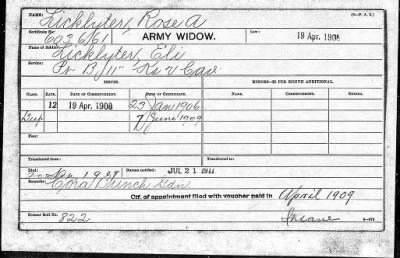 NAME: Licklyter, Rose A (3—P. A. S.)
Certificate No. 603661 ARMY WIDOW. Law: 19 Apr. 1908
Name of Soldier: Licklyter, Eli
Service: Pv B/11" Ks V Cav
ISSUES. MINORS—$2 PER MONTH ADDITIONAL.
CLASS. RATE. DATE OF COMMENCEMENT. DATE OF CERTIFICATE. NAME. COMMENCEMENT. EXPIRATION.
12 19 Apr. 1908 23 Jan 1906
Dup 7 June 1909
Fees:
Transferred from: Transferred to:
Died: 1927 Bureau notified: JUL 21 1911
Remarks: Cora Gdn
Ctf. of appointment filed with voucher paid in April 1909
Former Roll No. 822 Insane